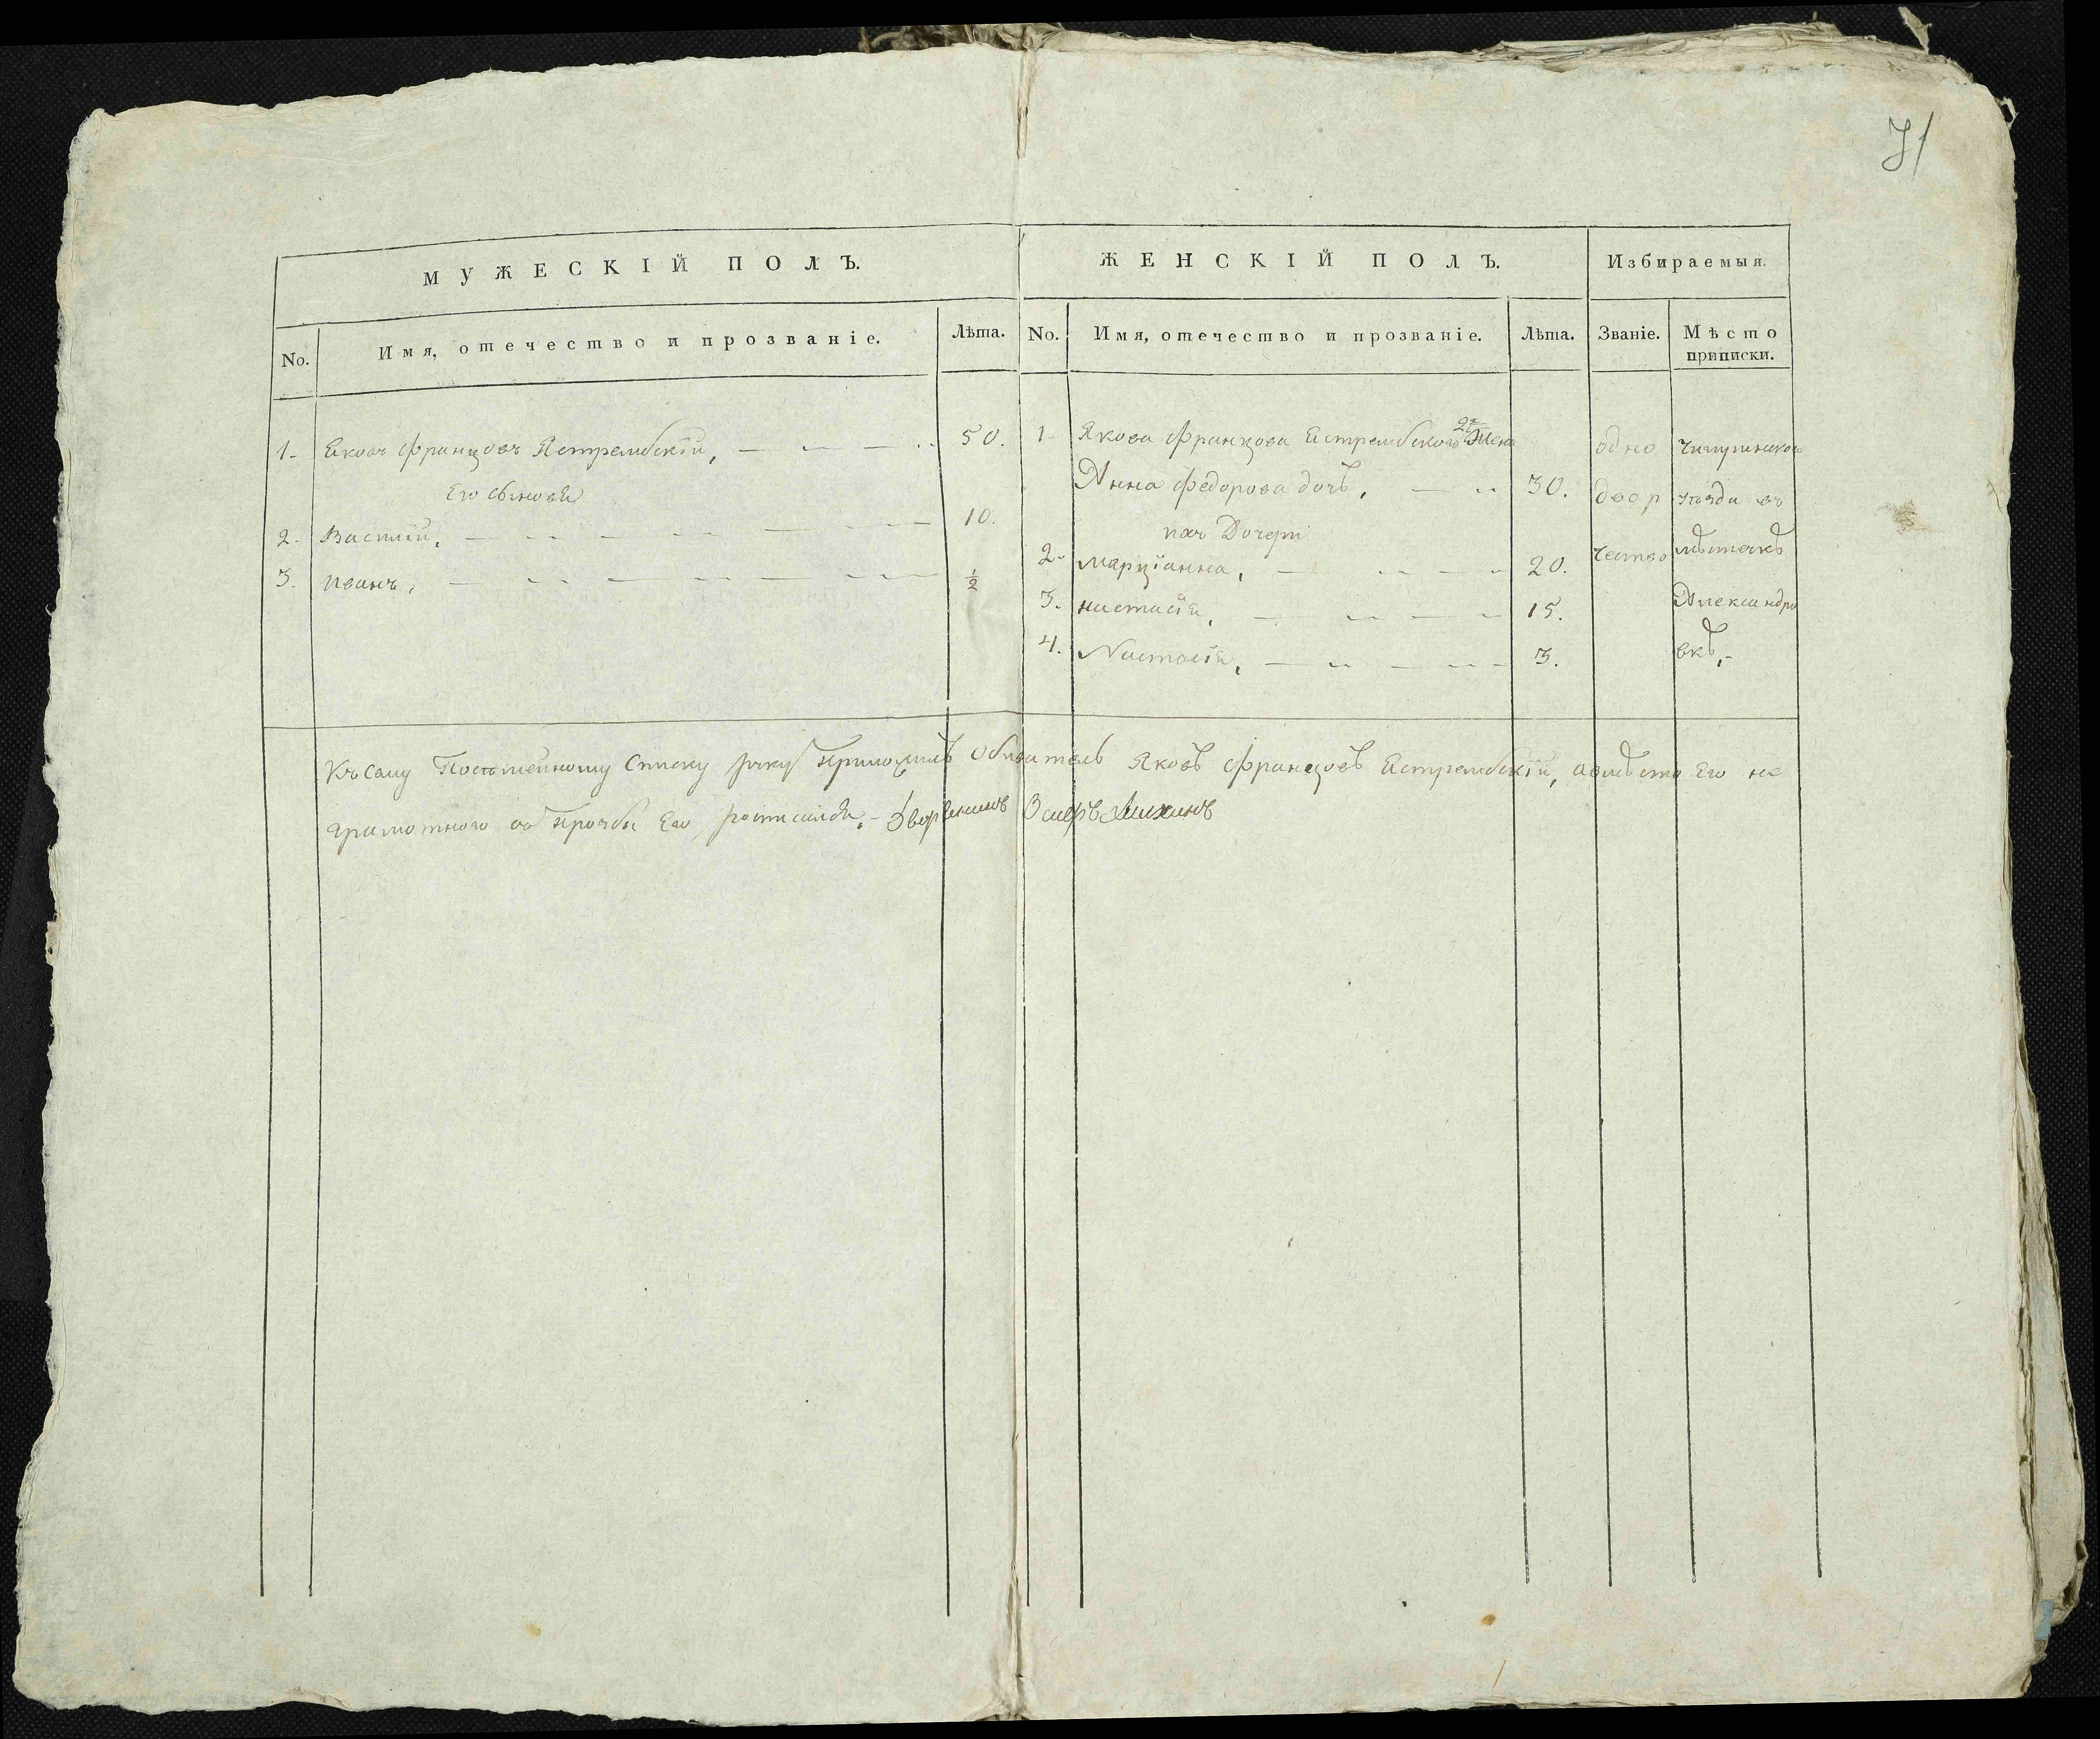 71
МУЖЕСКІЙ ПОЛЪ.
No. Имя, отечество и прозваніе. Лѣта.
1. Яковъ Францовъ Ястрембскій, 50.
Его сыновя
2. Василій, 10.
3. иванъ, ½
ЖЕНСКІЙ ПОЛЪ.
No. Имя, отечество и прозваніе. Лѣта.
1 Якова Францова Ястрембского 2я Жена
Анна Федорова дочь, 30.
ихъ Дочери
2. марціанна, 20.
3. настасія, 15.
4. Настасія, 3.
Избираемыя.
Званіе. Мѣсто
приписки.
одно
двор
чество
Чигиринского
уѣзда въ
мѣстечкѣ
Александро
вкѣ,
Къ Сему Посѣмейному Списку руку приложилъ Обыватель Яковъ Францовъ Ястрембскій, авмѣсто Его не
грамотного по прозбы Его, росписался, Дворянинъ Осипъ